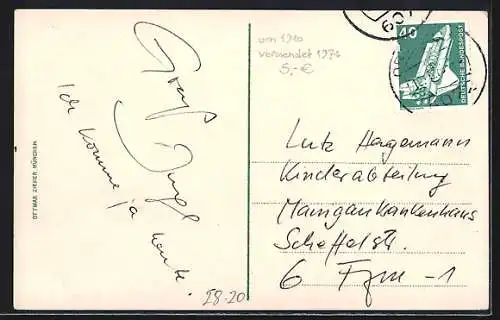 um 1910
versendet 1976
5,- €
Gruß
Ich komme ja heute.
28-20
OTTMAR ZIEHER, MÜNCHEN
40
DEUTSCHE BUNDESPOST
Lutz Hagemann
Kinderabteilung
Maingaukrankenhaus
Scheffelstr.
6 Ffm-1